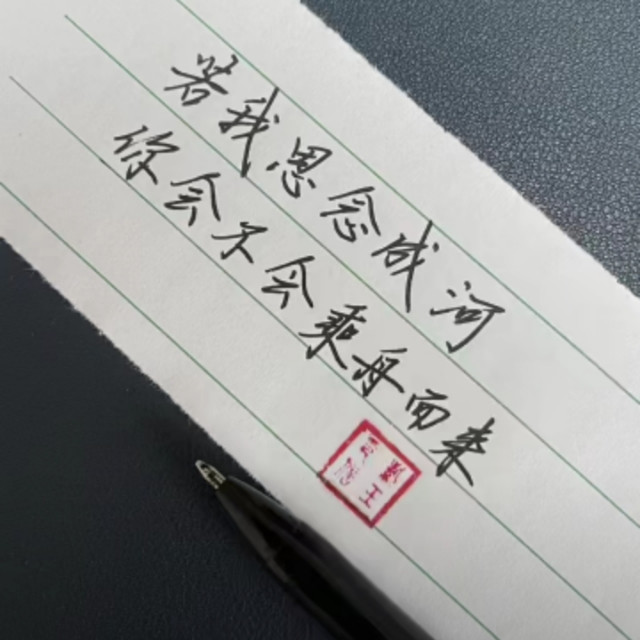 若我思念成河
你会不会乘舟而来